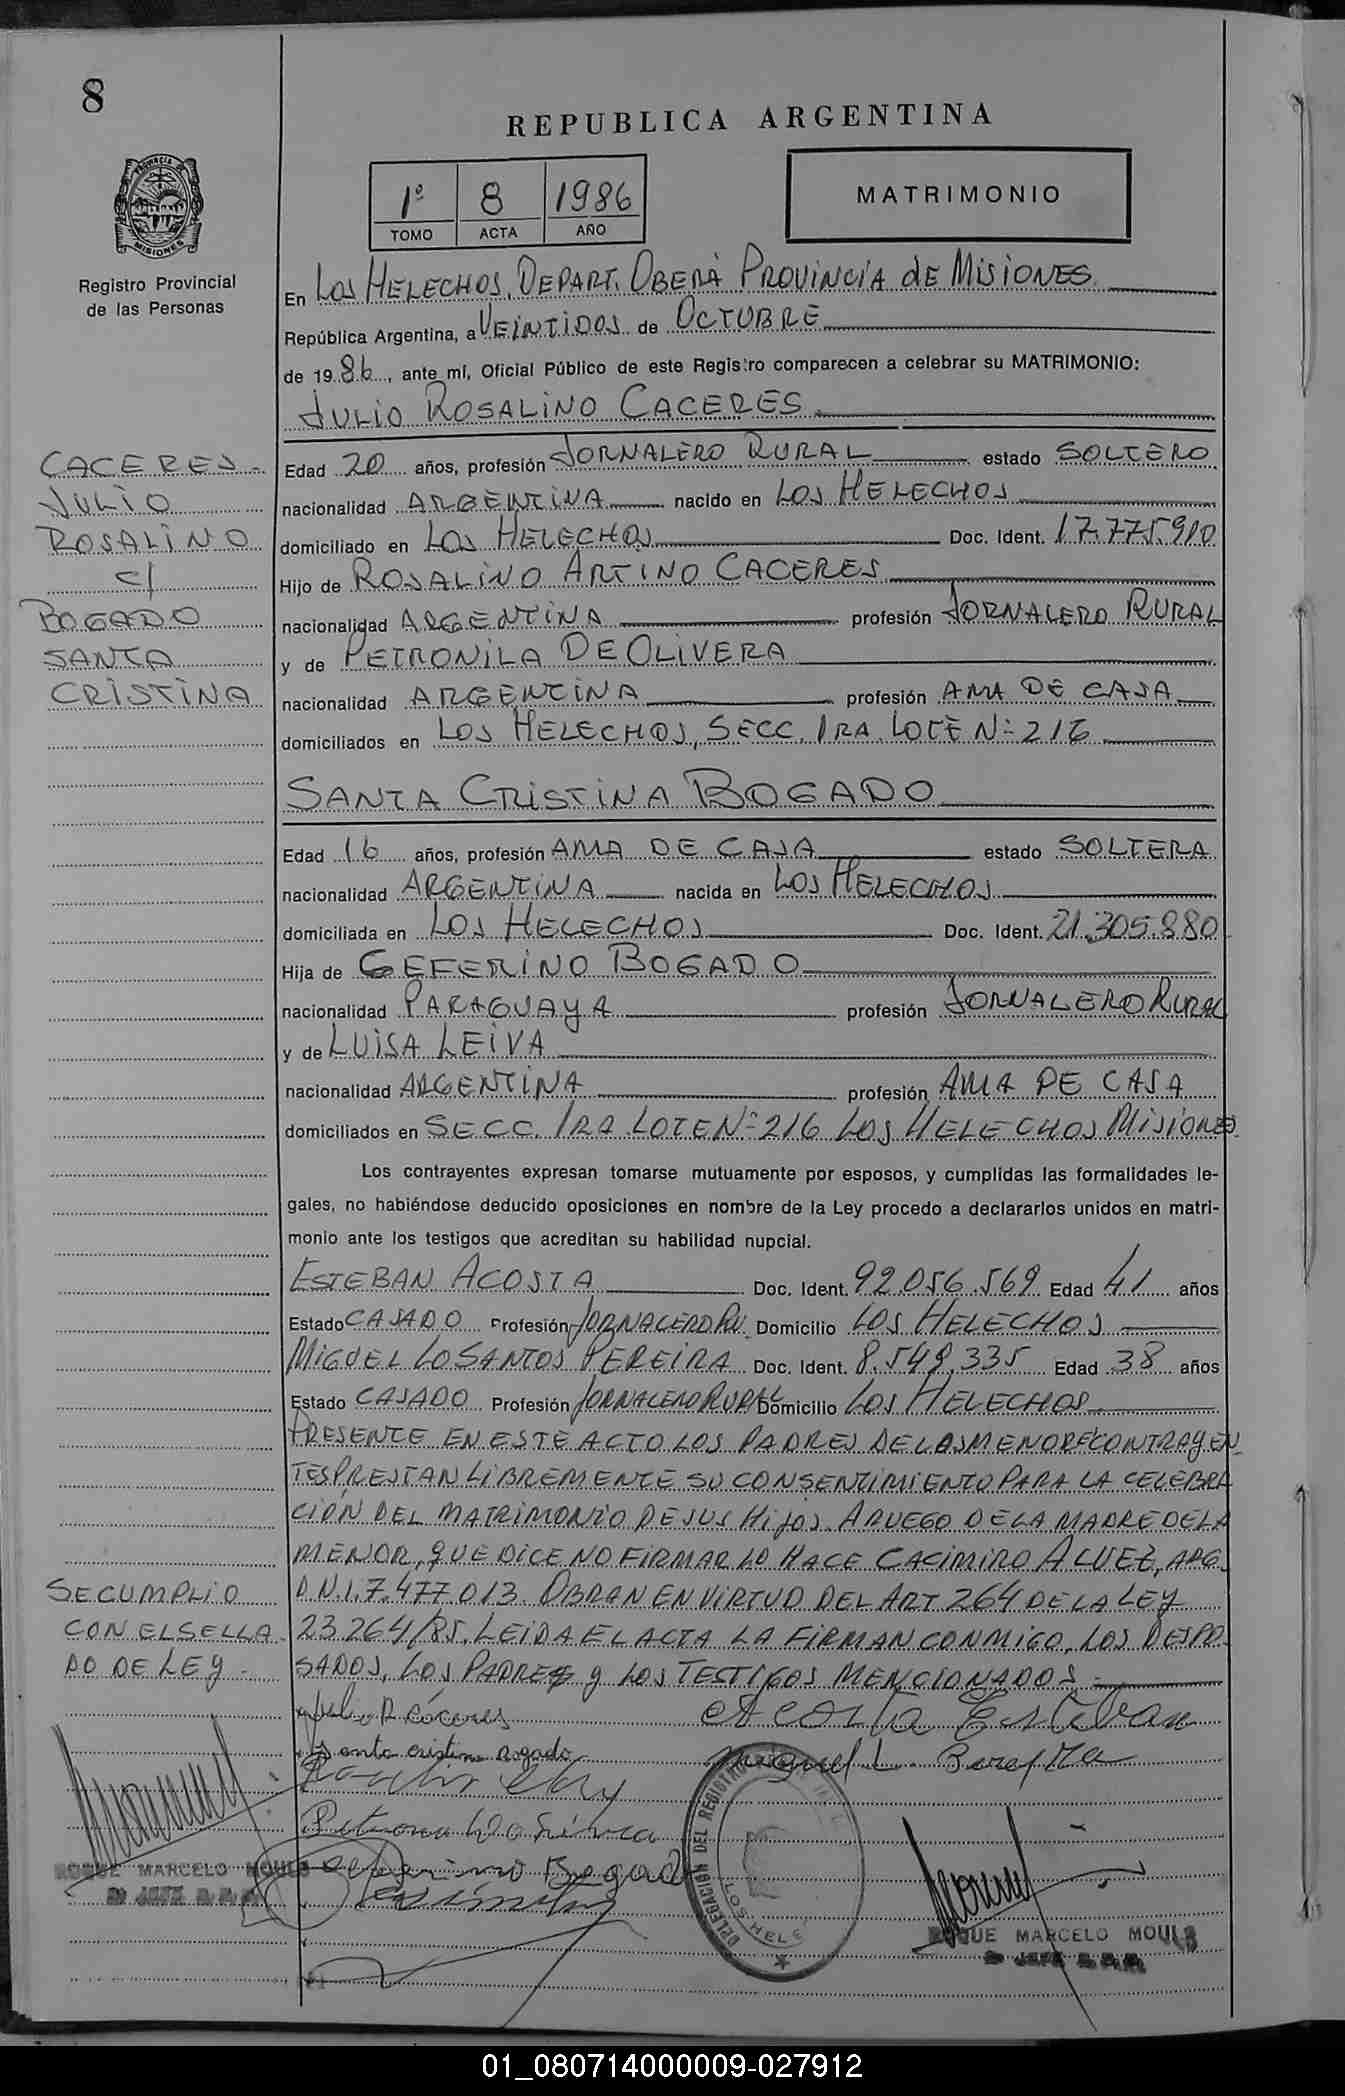 8
REPUBLICA ARGENTINA
1º 8 1986
TOMO ACTA AÑO
MATRIMONIO
PROVINCIA DE MISIONES
Registro Provincial
de las Personas
En LOS HELECHOS, DEPART. OBERÁ PROVINCIA de MISIONES.
República Argentina, a VEINTIDOS de OCTUBRE
de 19 86, ante mí, Oficial Público de este Registro comparecen a celebrar su MATRIMONIO:
JULIO ROSALINO CACERES
CACERES-
JULIO
ROSALINO
c/
BOGADO
SANTA
CRISTINA
Edad 20 años, profesión JORNALERO RURAL estado SOLTERO
nacionalidad ARGENTINA nacido en LOS HELECHOS
domiciliado en LOS HELECHOS Doc. Ident. 17.775.910
Hijo de ROSALINO ARTINO CACERES
nacionalidad ARGENTINA profesión JORNALERO RURAL
y de PETRONILA DEOLIVERA
nacionalidad ARGENTINA profesión AMA DE CASA
domiciliados en LOS HELECHOS, SECC. 1RA LOTE Nº 216
SANTA CRISTINA BOGADO
Edad 16 años, profesión AMA DE CASA estado SOLTERA
nacionalidad ARGENTINA nacida en LOS HELECHOS
domiciliada en LOS HELECHOS Doc. Ident. 21.305.880
Hija de CEFERINO BOGADO
nacionalidad PARAGUAYA profesión JORNALERO RURAL
y de LUISA LEIVA
nacionalidad ARGENTINA profesión AMA DE CASA
domiciliados en SECC. 1RA LOTE Nº 216 LOS HELECHOS MISIONES
Los contrayentes expresan tomarse mutuamente por esposos, y cumplidas las formalidades le-
gales, no habiéndose deducido oposiciones en nombre de la Ley procedo a declararlos unidos en matri-
monio ante los testigos que acreditan su habilidad nupcial.
ESTEBAN ACOSTA Doc. Ident. 92.056.569 Edad 41 años
Estado CASADO Profesión JORNALERO RU. Domicilio LOS HELECHOS
MIGUEL LOSANTOS PEREIRA Doc. Ident. 8.549.335 Edad 38 años
Estado CASADO Profesión JORNALERO RURAL Domicilio LOS HELECHOS
PRESENTE EN ESTE ACTO LOS PADRES DE LOS MENORES CONTRAYEN
TES PRESTAN LIBREMENTE SU CONSENTIMIENTO PARA LA CELEBRA
CIÓN DEL MATRIMONIO DE SUS HIJOS. A RUEGO DE LA MADRE DE LA
MENOR, QUE DICE NO FIRMAR LO HACE CACIMIRO ALVEZ, ARG.
D.N.I. 7.477.013. OBRAN EN VIRTUD DEL ART 264 DE LA LEY
23264/85. LEIDA EL ACTA LA FIRMAN CONMIGO, LOS DESPO
SADOS, LOS PADRES y LOS TESTIGOS MENCIONADOS.-
SE CUMPLIO
CON EL SELLA
DO DE LEY-
Julio R Cáceres
Acosta Esteban
Santa cristina Bogado
Miguel L. Pereira
Bogado
DELEGACIÓN DEL REGISTRO
LOS HELE
ROQUE MARCELO MOULS
ROQUE MARCELO MOULS
01_080714000009-027912